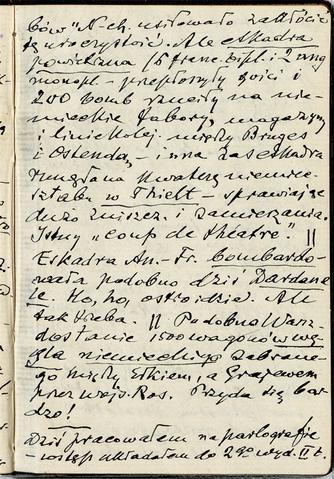 bów" N-ch. usiłowało zakłócić
tę uroczystość. Ale eskadra
powietrzna (6 franc. dipl. i 2 ang
monopl. - przepłoszyły gości i
200 bomb rzuciły na nie-
mieckie tabory, magazyny
i linie kolej. między Bruges
i Ostendą, - inna zaś eskadra
zmuszona kwaterę niemiec.
sztabu w Thielt - sprawiając
dużo zniszcz. i zamieszania.
Istny „coup de théatre". ||
Eskadra An.-Fr. bombardo-
wała podobno dziś Dardane-
le. Ho, ho, ostro idzie. Ale
tak trzeba. || Podobno Warsz.
dostanie 1500 wagonów wę-
gla niemieckiego zabrane-
go między Ełkiem, a Grajewem
przez wojs. Ros. Przyda się bar-
dzo!
Dziś pracowałem na parlografie
- wstęp układałem do 2go wyd. II t.